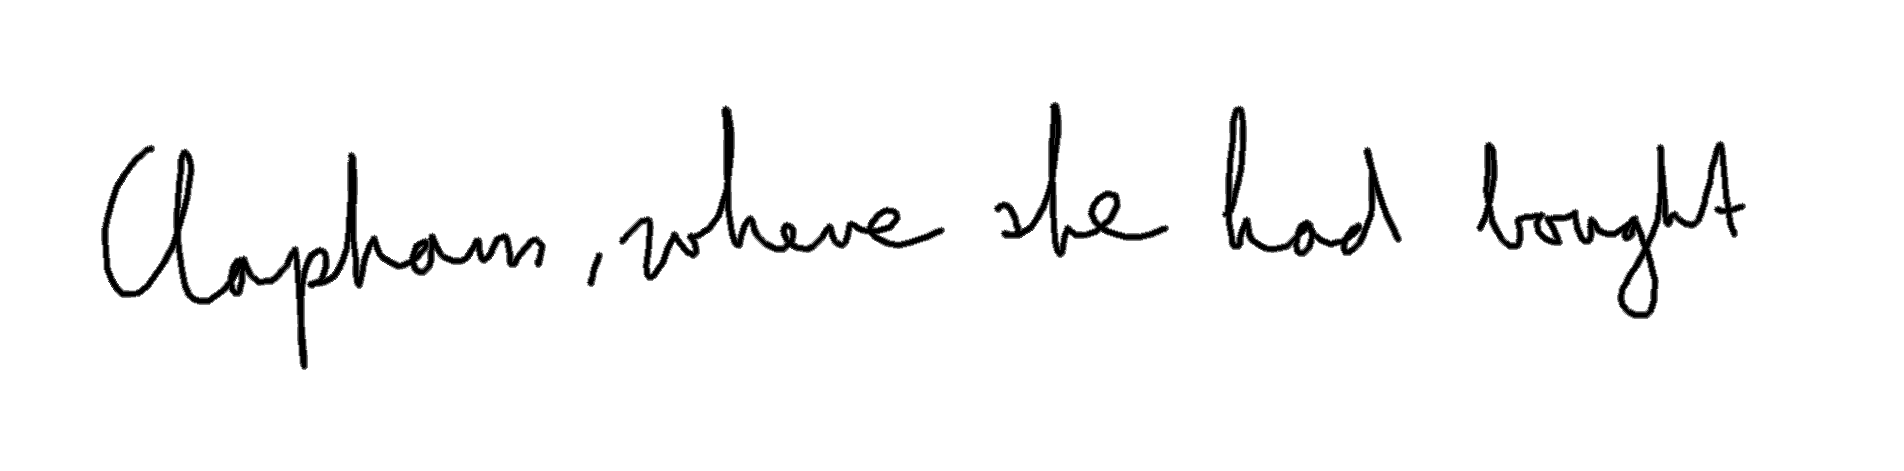 Clapham, where she had bought